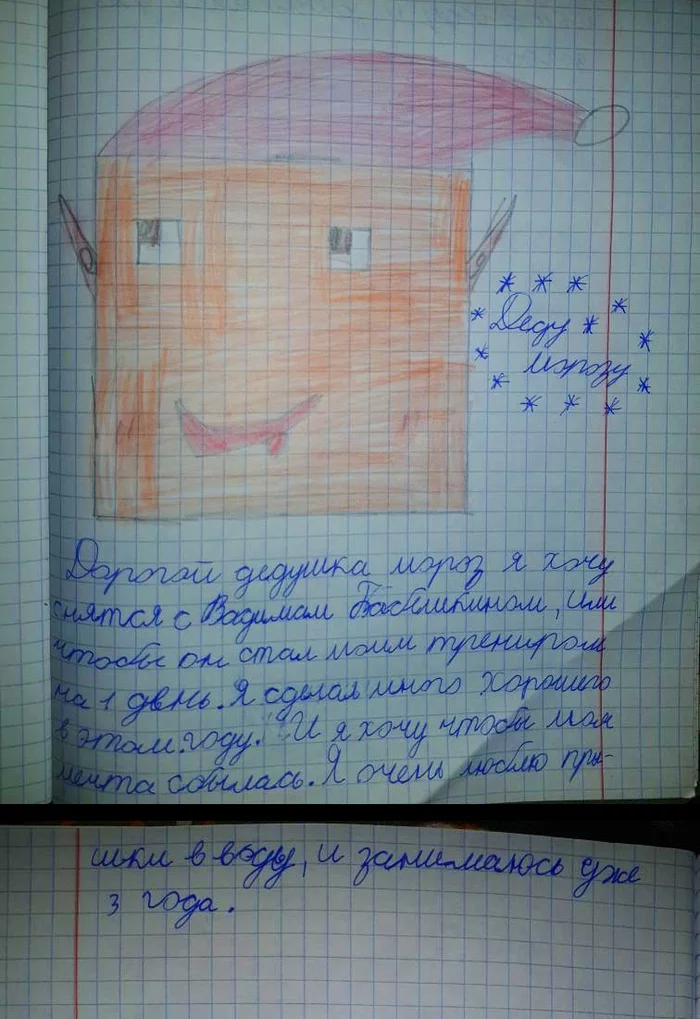 Деду
Морозу
Дорогой дедушка мороз я хочу
снятся с Вадимам Бабешкином, или
чтобы он стал моим трениром
на 1 день. Я сделал много хорошего
в этом году. И я хочу чтобы моя
мечта сбылась. Я очень люблю пры-
шки в воду, и занимаюсь уже
3 года.